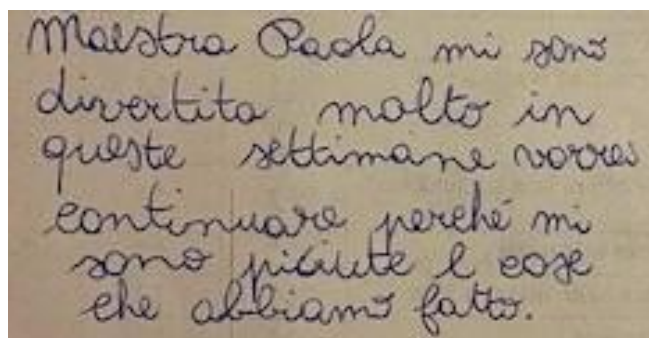 Maestra Paola mi sono
divertita molto in
queste settimane vorrei
continuare perché mi
sono piciute l cose
che abbiamo fatto.